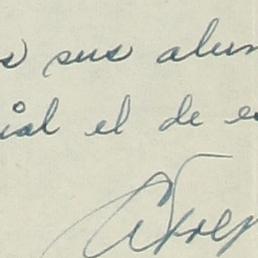 s sus alum
ial el de es